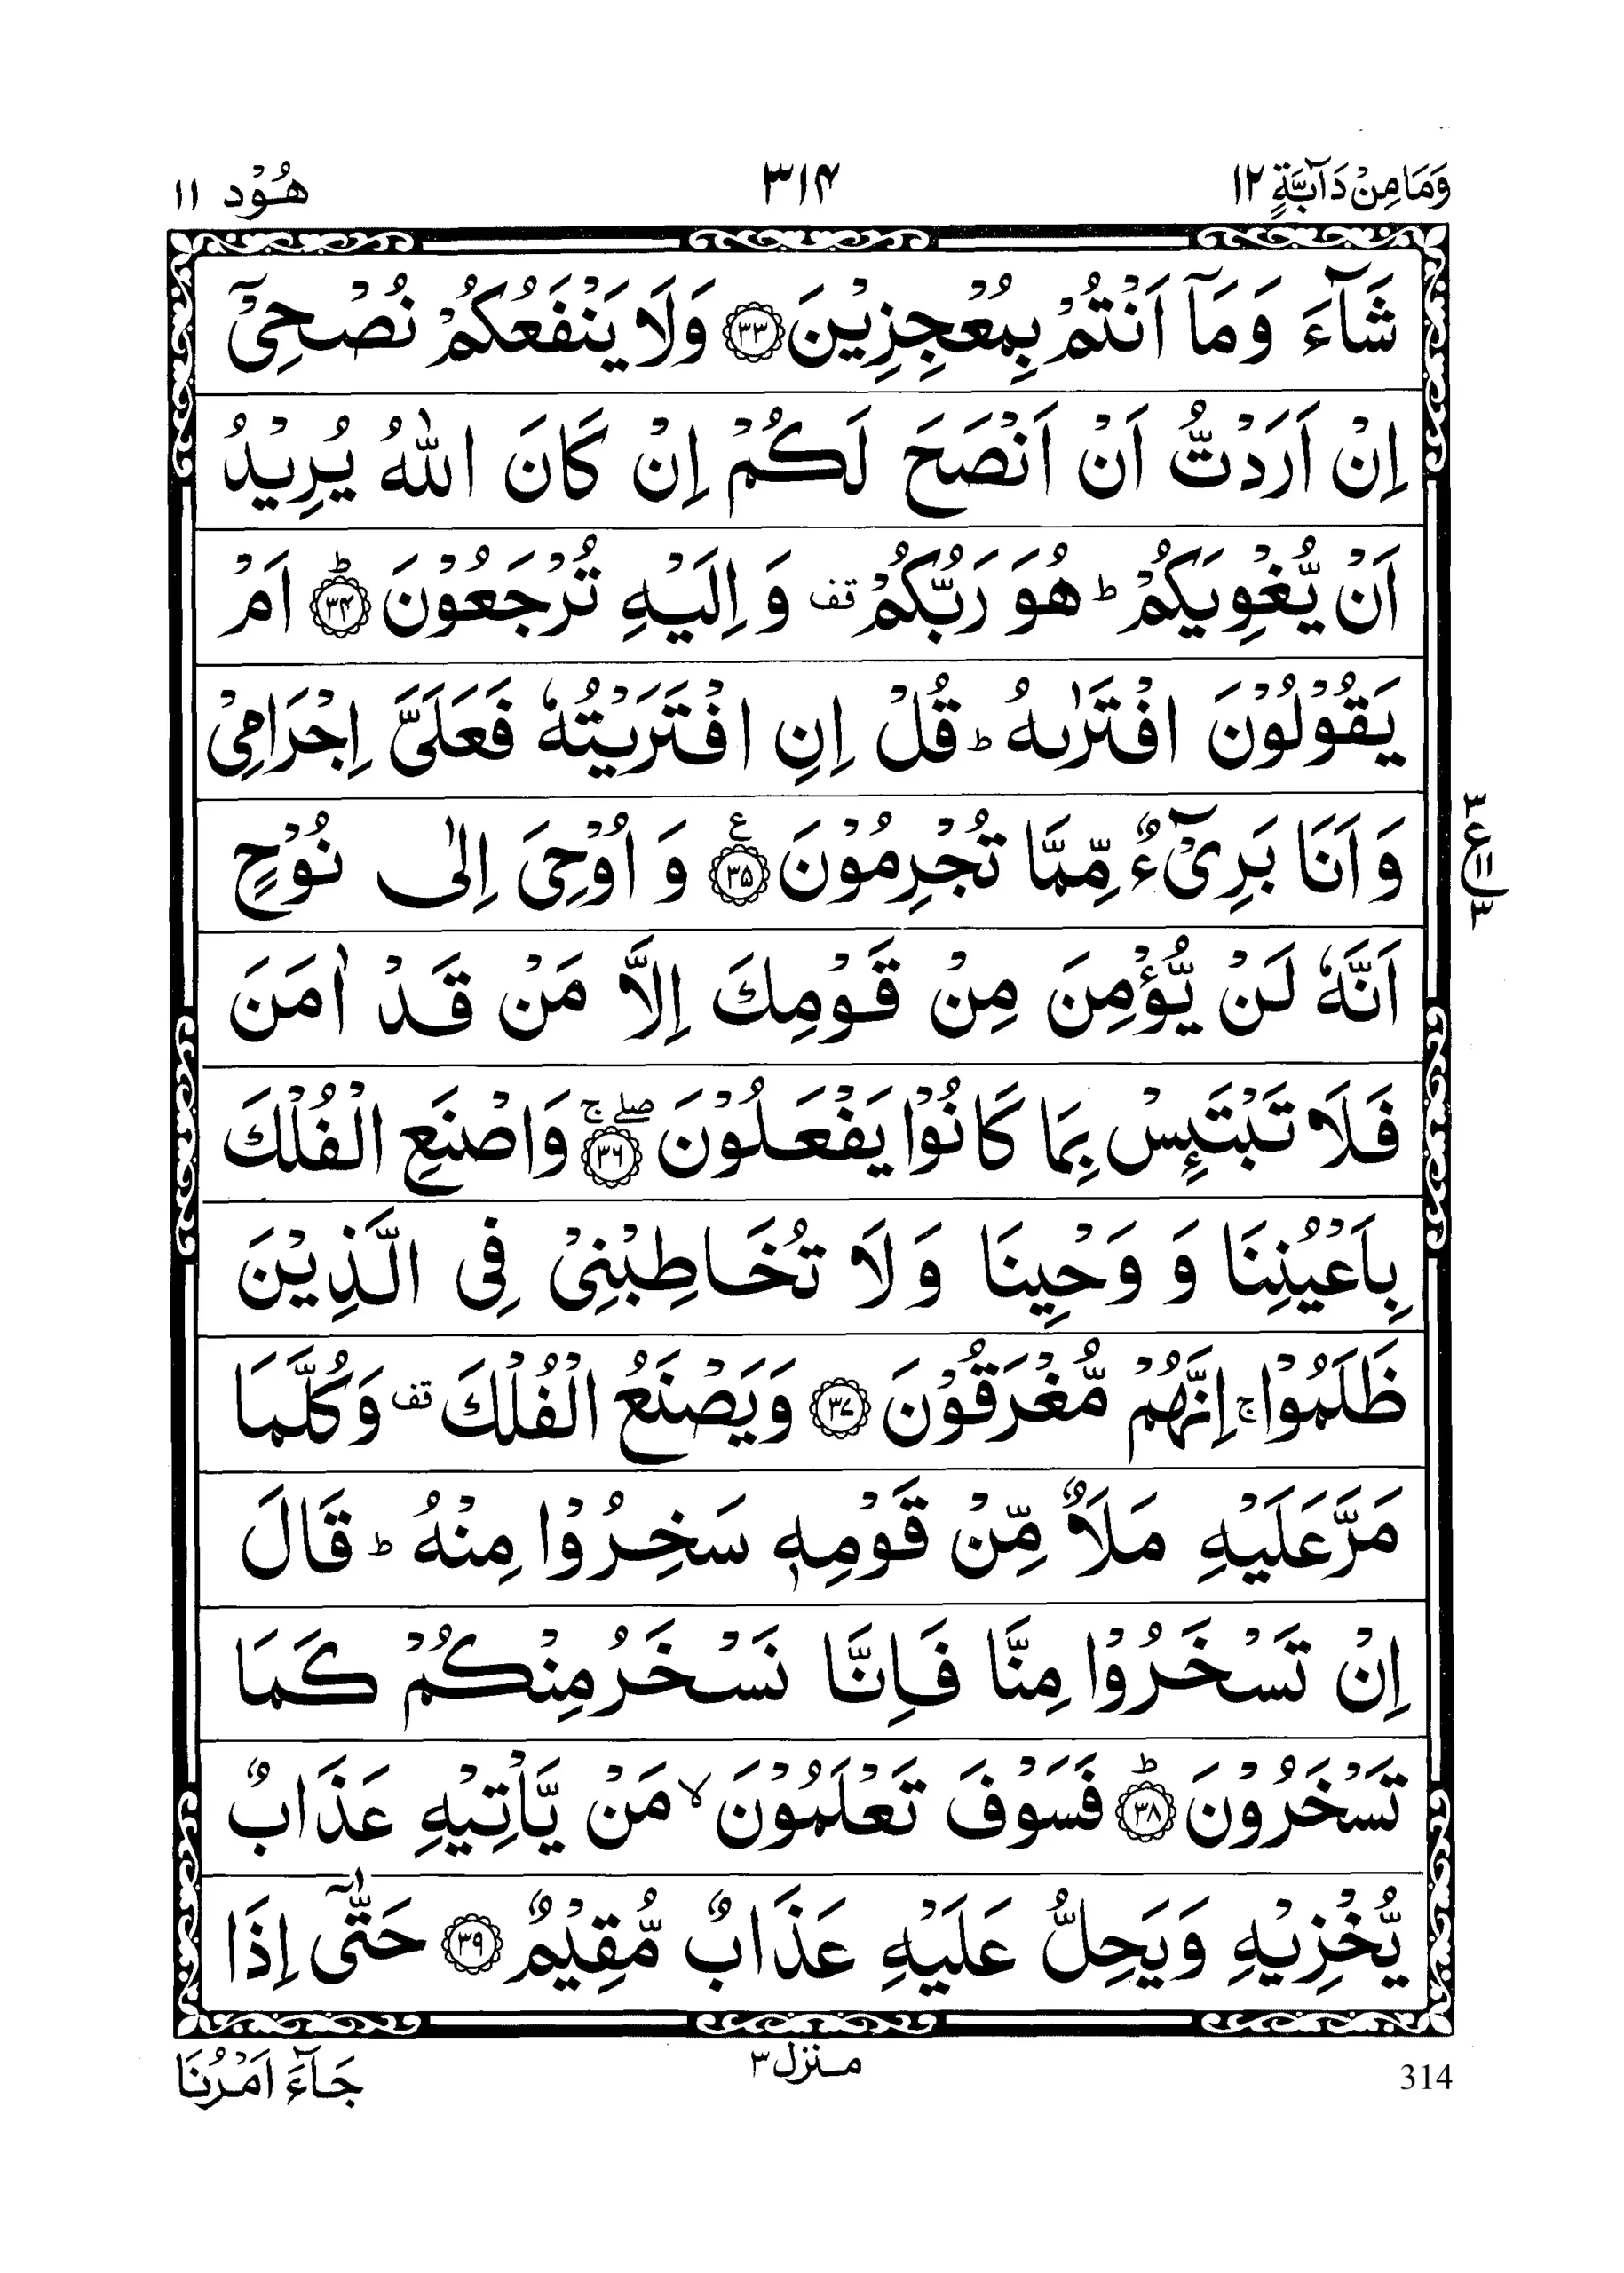 وَمَا مِنْ دَآبَّةٍ ١٢
٣١۴
هُوْد ١١
شَآءَ وَمَآ اَنْتُمْ بِمُعْجِزِيْنَ ﴿٣٣﴾ وَلَا يَنْفَعُكُمْ نُصْحِىْٓ
اِنْ اَرَدْتُّ اَنْ اَنْصَحَ لَكُمْ اِنْ كَانَ اللّٰهُ يُرِيْدُ
اَنْ يُّغْوِيَكُمْ ؕ هُوَ رَبُّكُمْ قف وَ اِلَيْهِ تُرْجَعُوْنَ ﴿٣۴﴾ؕ اَمْ
يَقُوْلُوْنَ افْتَرٰىهُ ؕ قُلْ اِنِ افْتَرَيْتُهٗ فَعَلَىَّ اِجْرَامِىْ
وَ اَنَا بَرِىْٓءٌ مِّمَّا تُجْرِمُوْنَ ﴿٣۵﴾ ع وَ اُوْحِىَ اِلٰى نُوْحٍ
٣ ع ١١ ٣
اَنَّهٗ لَنْ يُّؤْمِنَ مِنْ قَوْمِكَ اِلَّا مَنْ قَدْ اٰمَنَ
فَلَا تَبْتَئِسْ بِمَا كَانُوْا يَفْعَلُوْنَ ﴿٣٦﴾ صلے ج وَاصْنَعِ الْفُلْكَ
بِاَعْيُنِنَا وَ وَحْيِنَا وَ لَا تُخَاطِبْنِىْ فِى الَّذِيْنَ
ظَلَمُوْا ج اِنَّهُمْ مُّغْرَقُوْنَ ﴿٣٧﴾ وَيَصْنَعُ الْفُلْكَ قف وَكُلَّمَا
مَرَّ عَلَيْهِ مَلَاٌ مِّنْ قَوْمِهٖ سَخِرُوْا مِنْهُ ؕ قَالَ
اِنْ تَسْخَرُوْا مِنَّا فَاِنَّا نَسْخَرُ مِنْكُمْ كَمَا
تَسْخَرُوْنَ ﴿٣٨﴾ؕ فَسَوْفَ تَعْلَمُوْنَ ۙ مَنْ يَّاْتِيْهِ عَذَابٌ
يُّخْزِيْهِ وَيَحِلُّ عَلَيْهِ عَذَابٌ مُّقِيْمٌ ﴿٣٩﴾ حَتّٰٓى اِذَا
جَآءَ اَمْرُنَا
منزل ٣
314